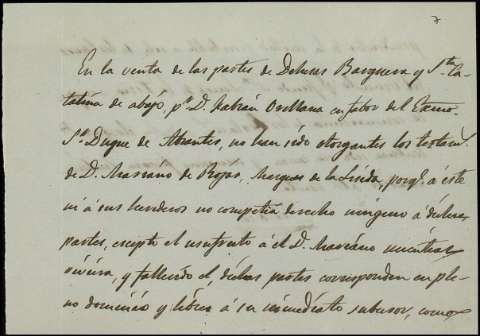 7
En la venta de las partes de Dehesas Barguera y Sta Ca-
talina de abajo, pr D. Fabián Orellana en favor del Excmo
Sr Duque de Abrantes, no han sido otorgantes los testam.
de D. Mariano de Rojas, Marques de la Liseda, porq. a éste
ni á sus herederos no competía derecho ninguno á dichas
partes, escepto el usufruto á el D. Mariano mientras
viviera, y fallecido él, dichas partes corresponden en ple-
no dominio y libres á su inmediato subcesor, como